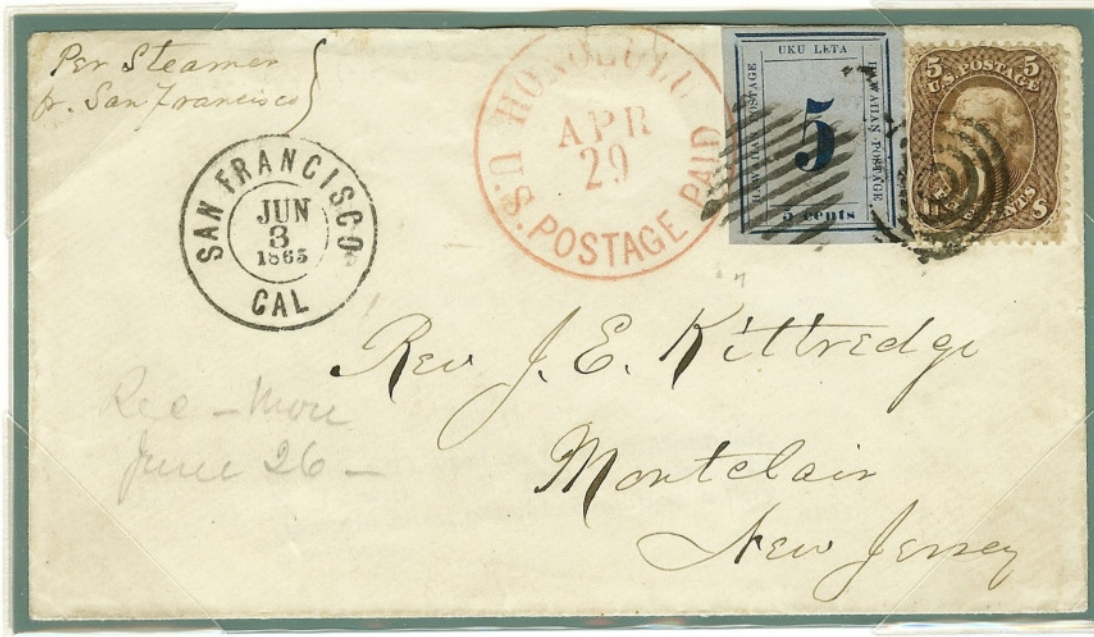 Per Steamer
fr. San Francisco
SAN FRANCISCO
JUN
3
1865
CAL
HONOLULU
APR
29
U.S. POSTAGE PAID
UKU LETA
HAWAIIAN POSTAGE
5
HAWAIIAN POSTAGE
5 cents
5 5
U.S. POSTAGE
FIVE CENTS
5
Rev J. E. Kittredge
Montclair
New Jersey
Rec - Mon
June 26 -